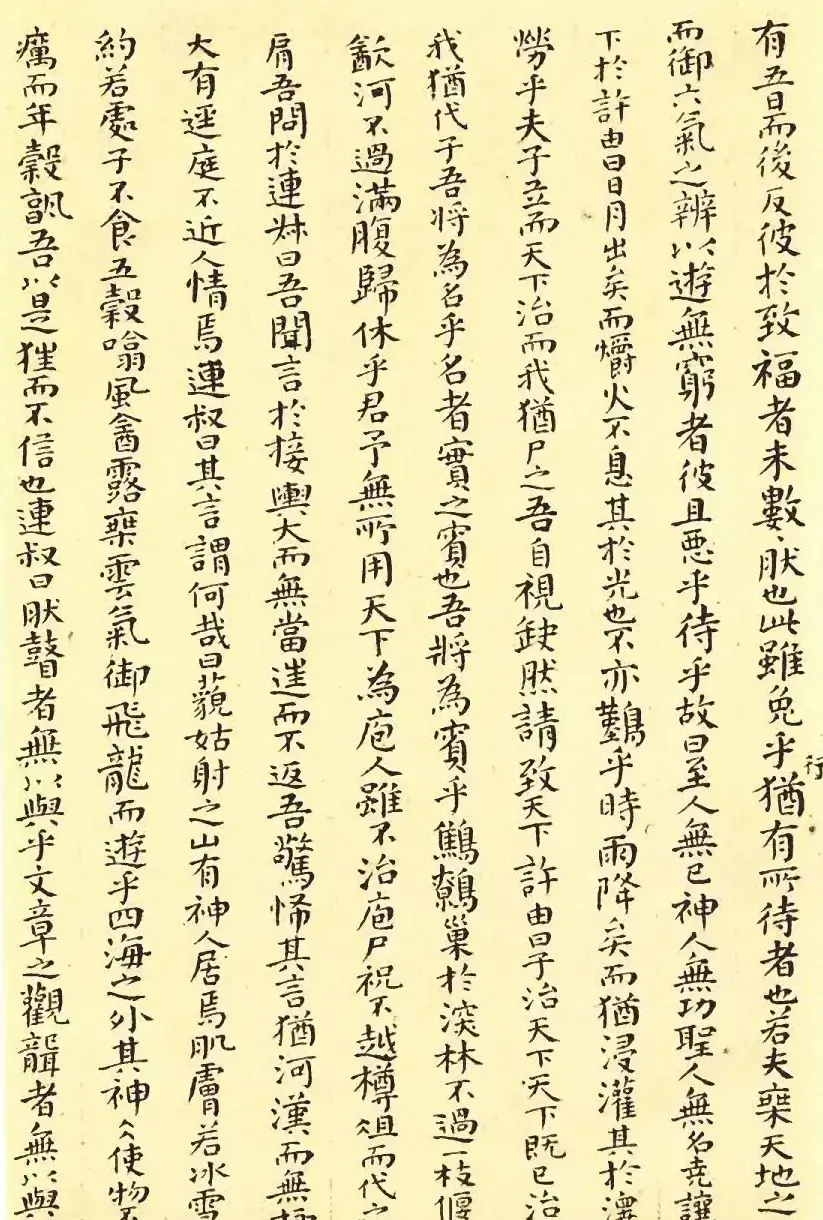 有五日而後反彼於致福者未數〻然也此雖免乎猶有所待者也若夫乗天地之
行
而御六氣之辨以遊無窮者彼且惡乎待乎故曰至人無己神人無功聖人無名堯讓
下於許由曰日月出矣而爝火不息其於光也不亦難乎時雨降矣而猶浸灌其於澤
勞乎夫子立而天下治而我猶尸之吾自視缺然請致天下許由曰子治天下天下既已治
我猶代子吾將為名乎名者實之賓也吾將為賓乎鷦鷯巢於深林不過一枝偃
歃河不過滿腹歸休乎君予無所用天下為庖人雖不治庖尸祝不越樽俎而代之
肩吾問於連叔曰吾聞言於接輿大而無當進而不返吾驚怖其言猶河漢而無極
大有逕庭不近人情焉連叔曰其言謂何哉曰藐姑射之山有神人居焉肌膚若冰雪
約若處子不食五穀噏風飲露乗雲氣御飛龍而遊乎四海之外其神〻使物不
癘而年穀熟吾以是狂而不信也連叔曰然瞽者無以與乎文章之觀聾者無以與